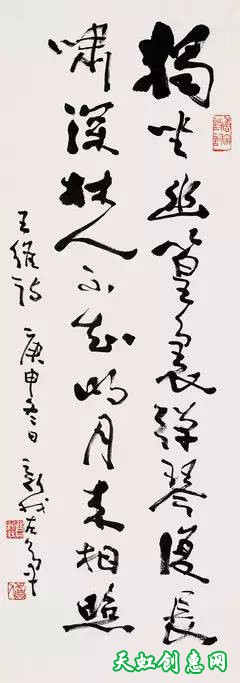 獨坐幽篁裏彈琴復長
嘯深林人不知明月來相照
王維詩 庚申冬日 新我左筆
天虹创意网